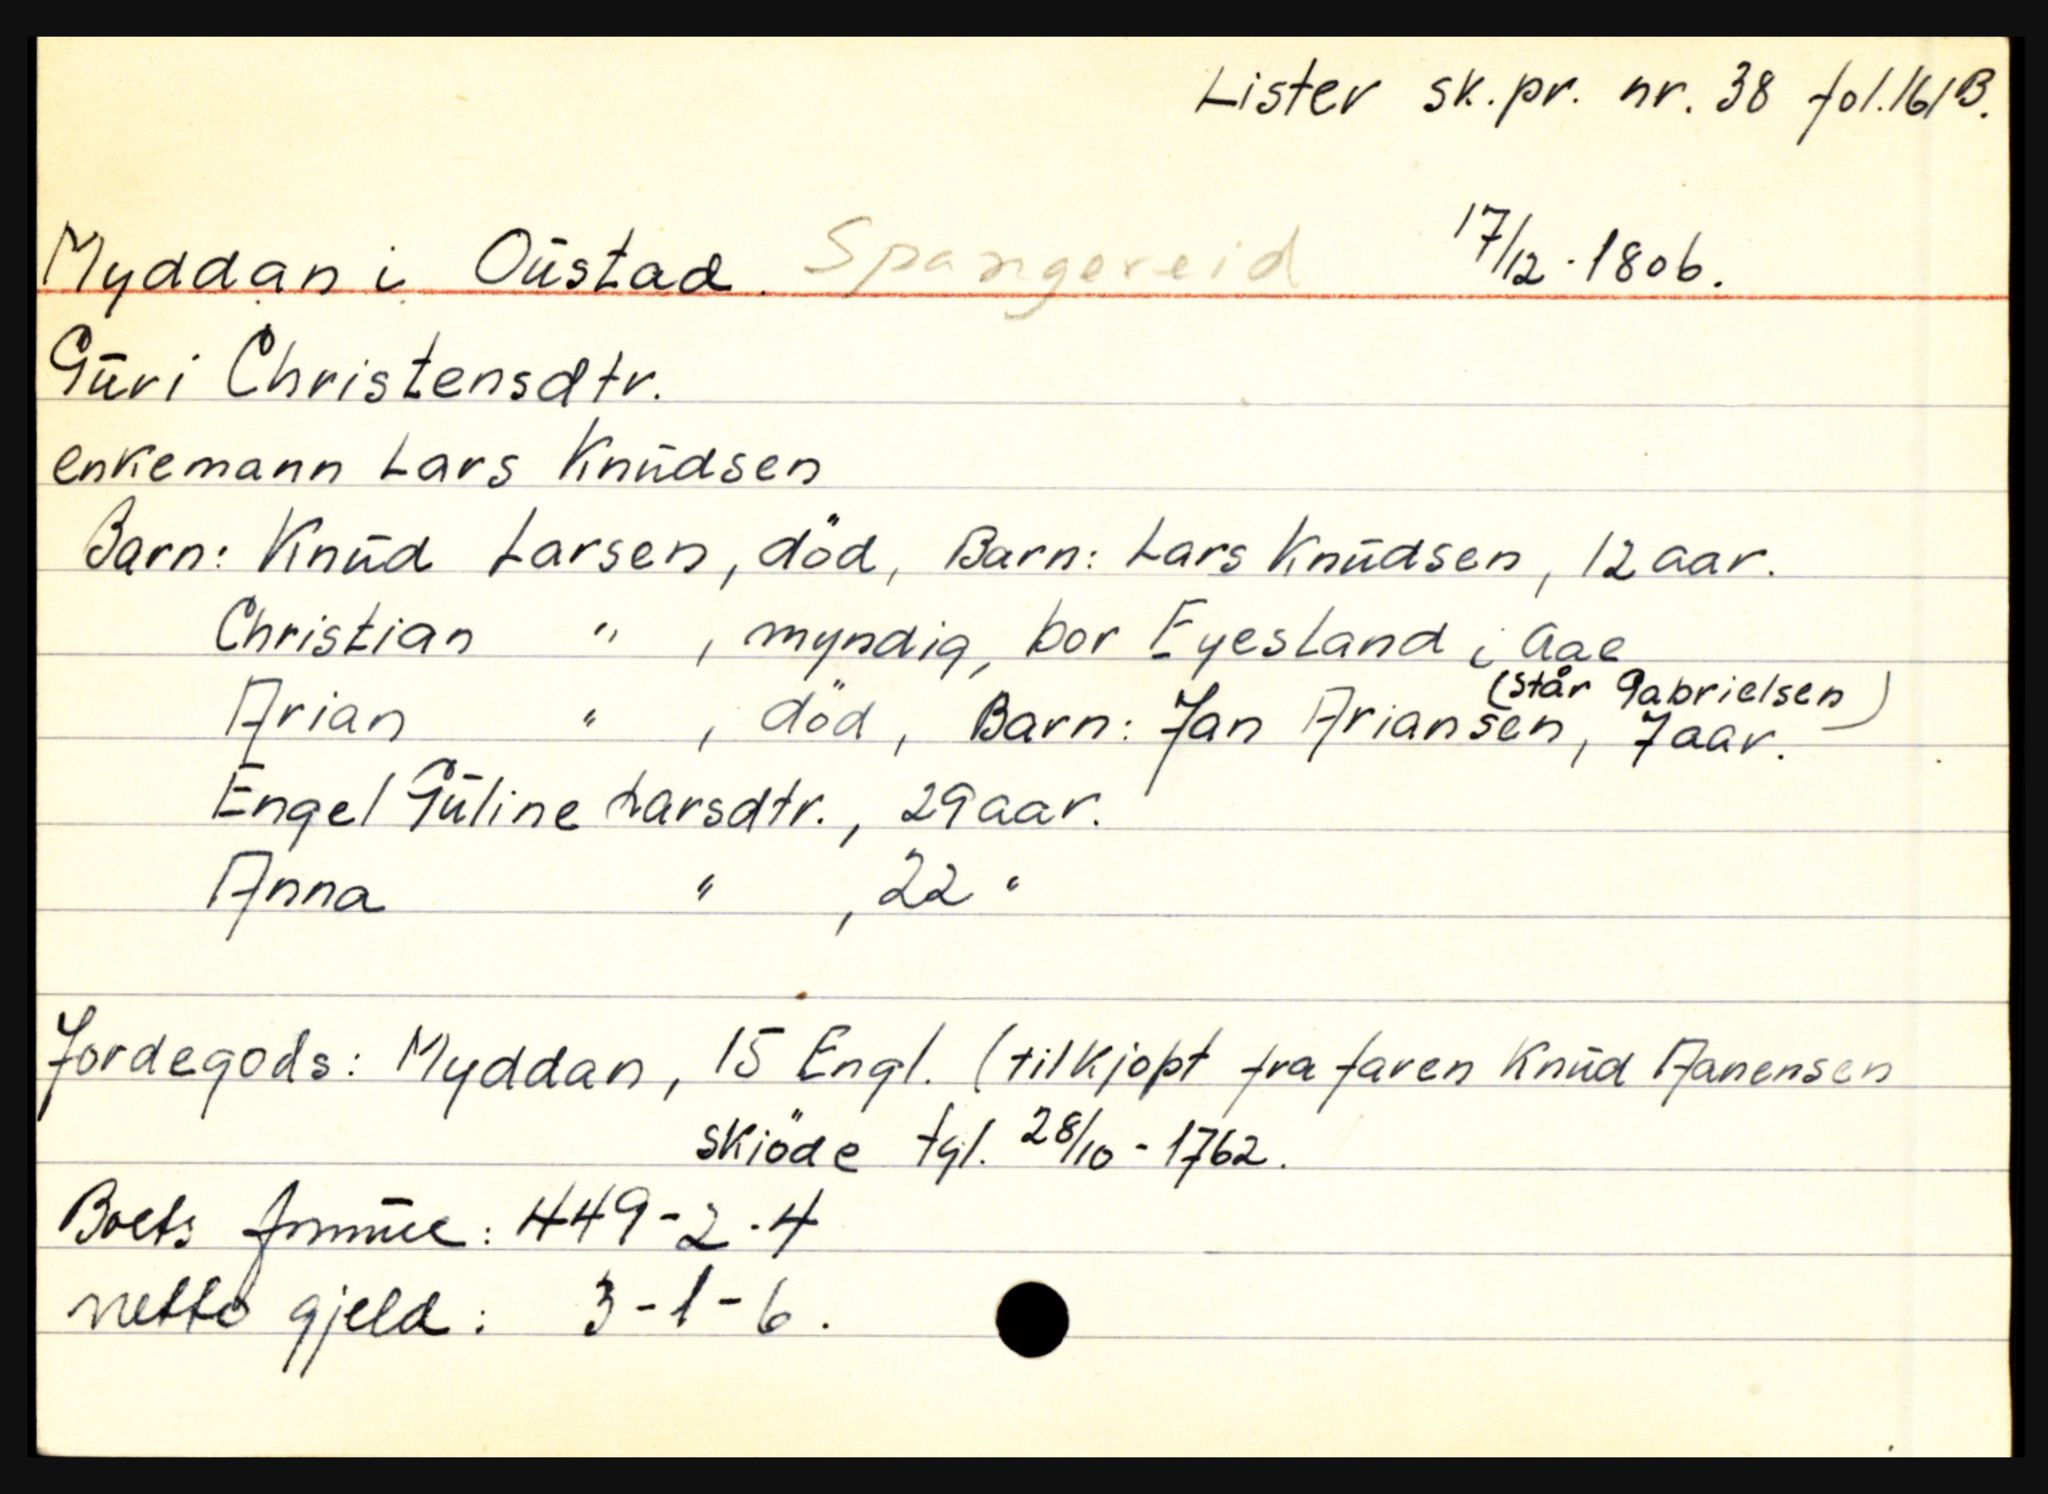 Lister sk.pr. nr. 38 fol. 161B.
Myddan i Oŭstad. Spangereid 17/12-1806.
Gŭri Christensdtr.
enkemann Lars Knŭdsen
Barn: Knŭd Larsen, död, Barn: Lars Knŭdsen, 12 aar.
Christian " , myndig, bor Eyesland i Aae
(står Gabrielsen)
Arian " , död, Barn: Jan Ariansen, 7 aar.
Engel Gŭline Larsdtr., 29 aar.
Anna " , 22 "
Jordegods: Myddan, 15 Engl. (tilkjopt fra faren Knŭd Aanensen
skiöde tgl. 28/10-1762.
Boets formŭe: 449-2-4
netto gjeld: 3-1-6.